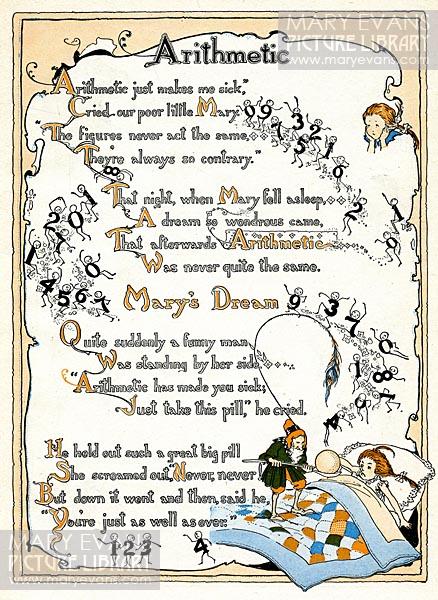 MARY EVANS
PICTURE LIBRARY
www.maryevans.com
Arithmetic
Arithmetic just makes me sick,"
Cried our poor little Mary.
"The figures never act the same,
They're always so contrary."
That night, when Mary fell asleep,
A dream so wondrous came,
That afterwards Arithmetic
Was never quite the same.
Mary's Dream
Quite suddenly a funny man
Was standing by her side
"Arithmetic has made you sick;
Just take this pill," he cried.
He held out such a great big pill
She screamed out, "Never, never"
But down it went and then, said he,
"You're just as well as ever."
123
4
MARY EVANS
PICTURE LIBRARY
www.maryevans.com
MARY EVANS
PICTURE LIBRARY
www.maryevans.com